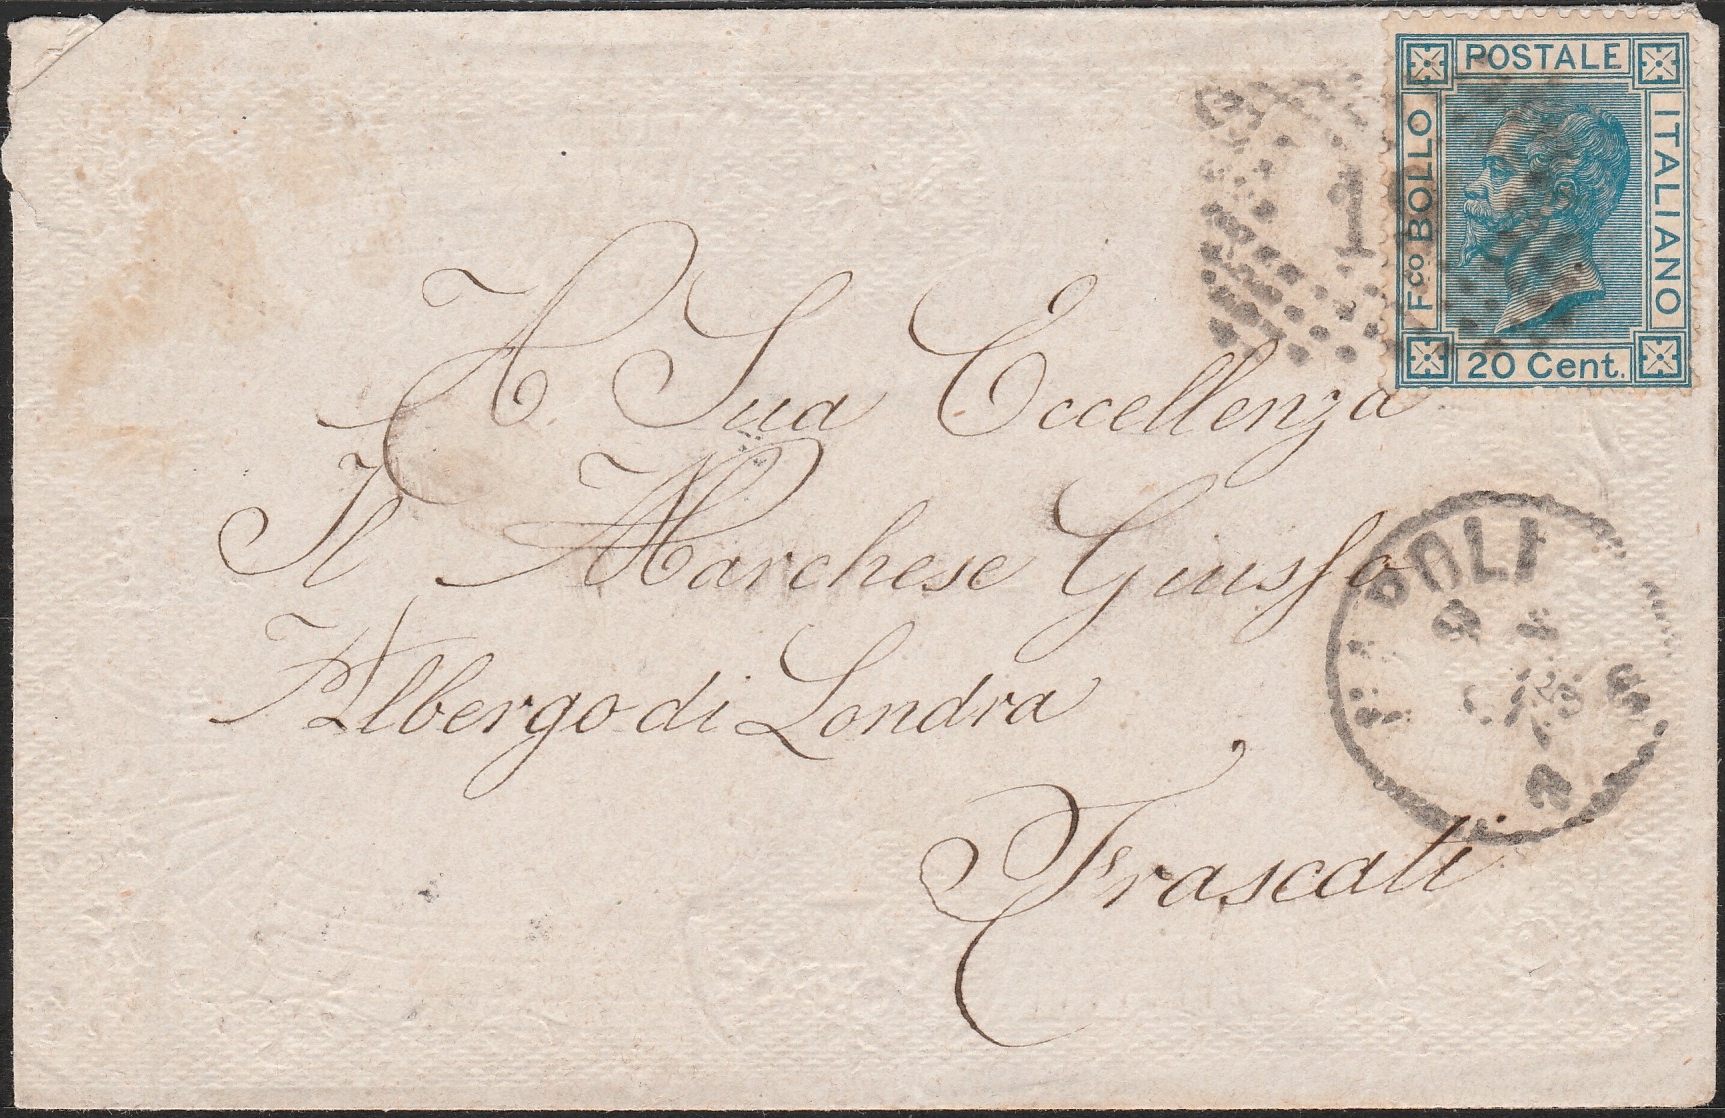 POSTALE
Fco BOLLO
ITALIANO
20 Cent.
1
A Sua Eccellenza
Il Marchese Giusso
Albergo di Londra
Frascati
NAPOLI